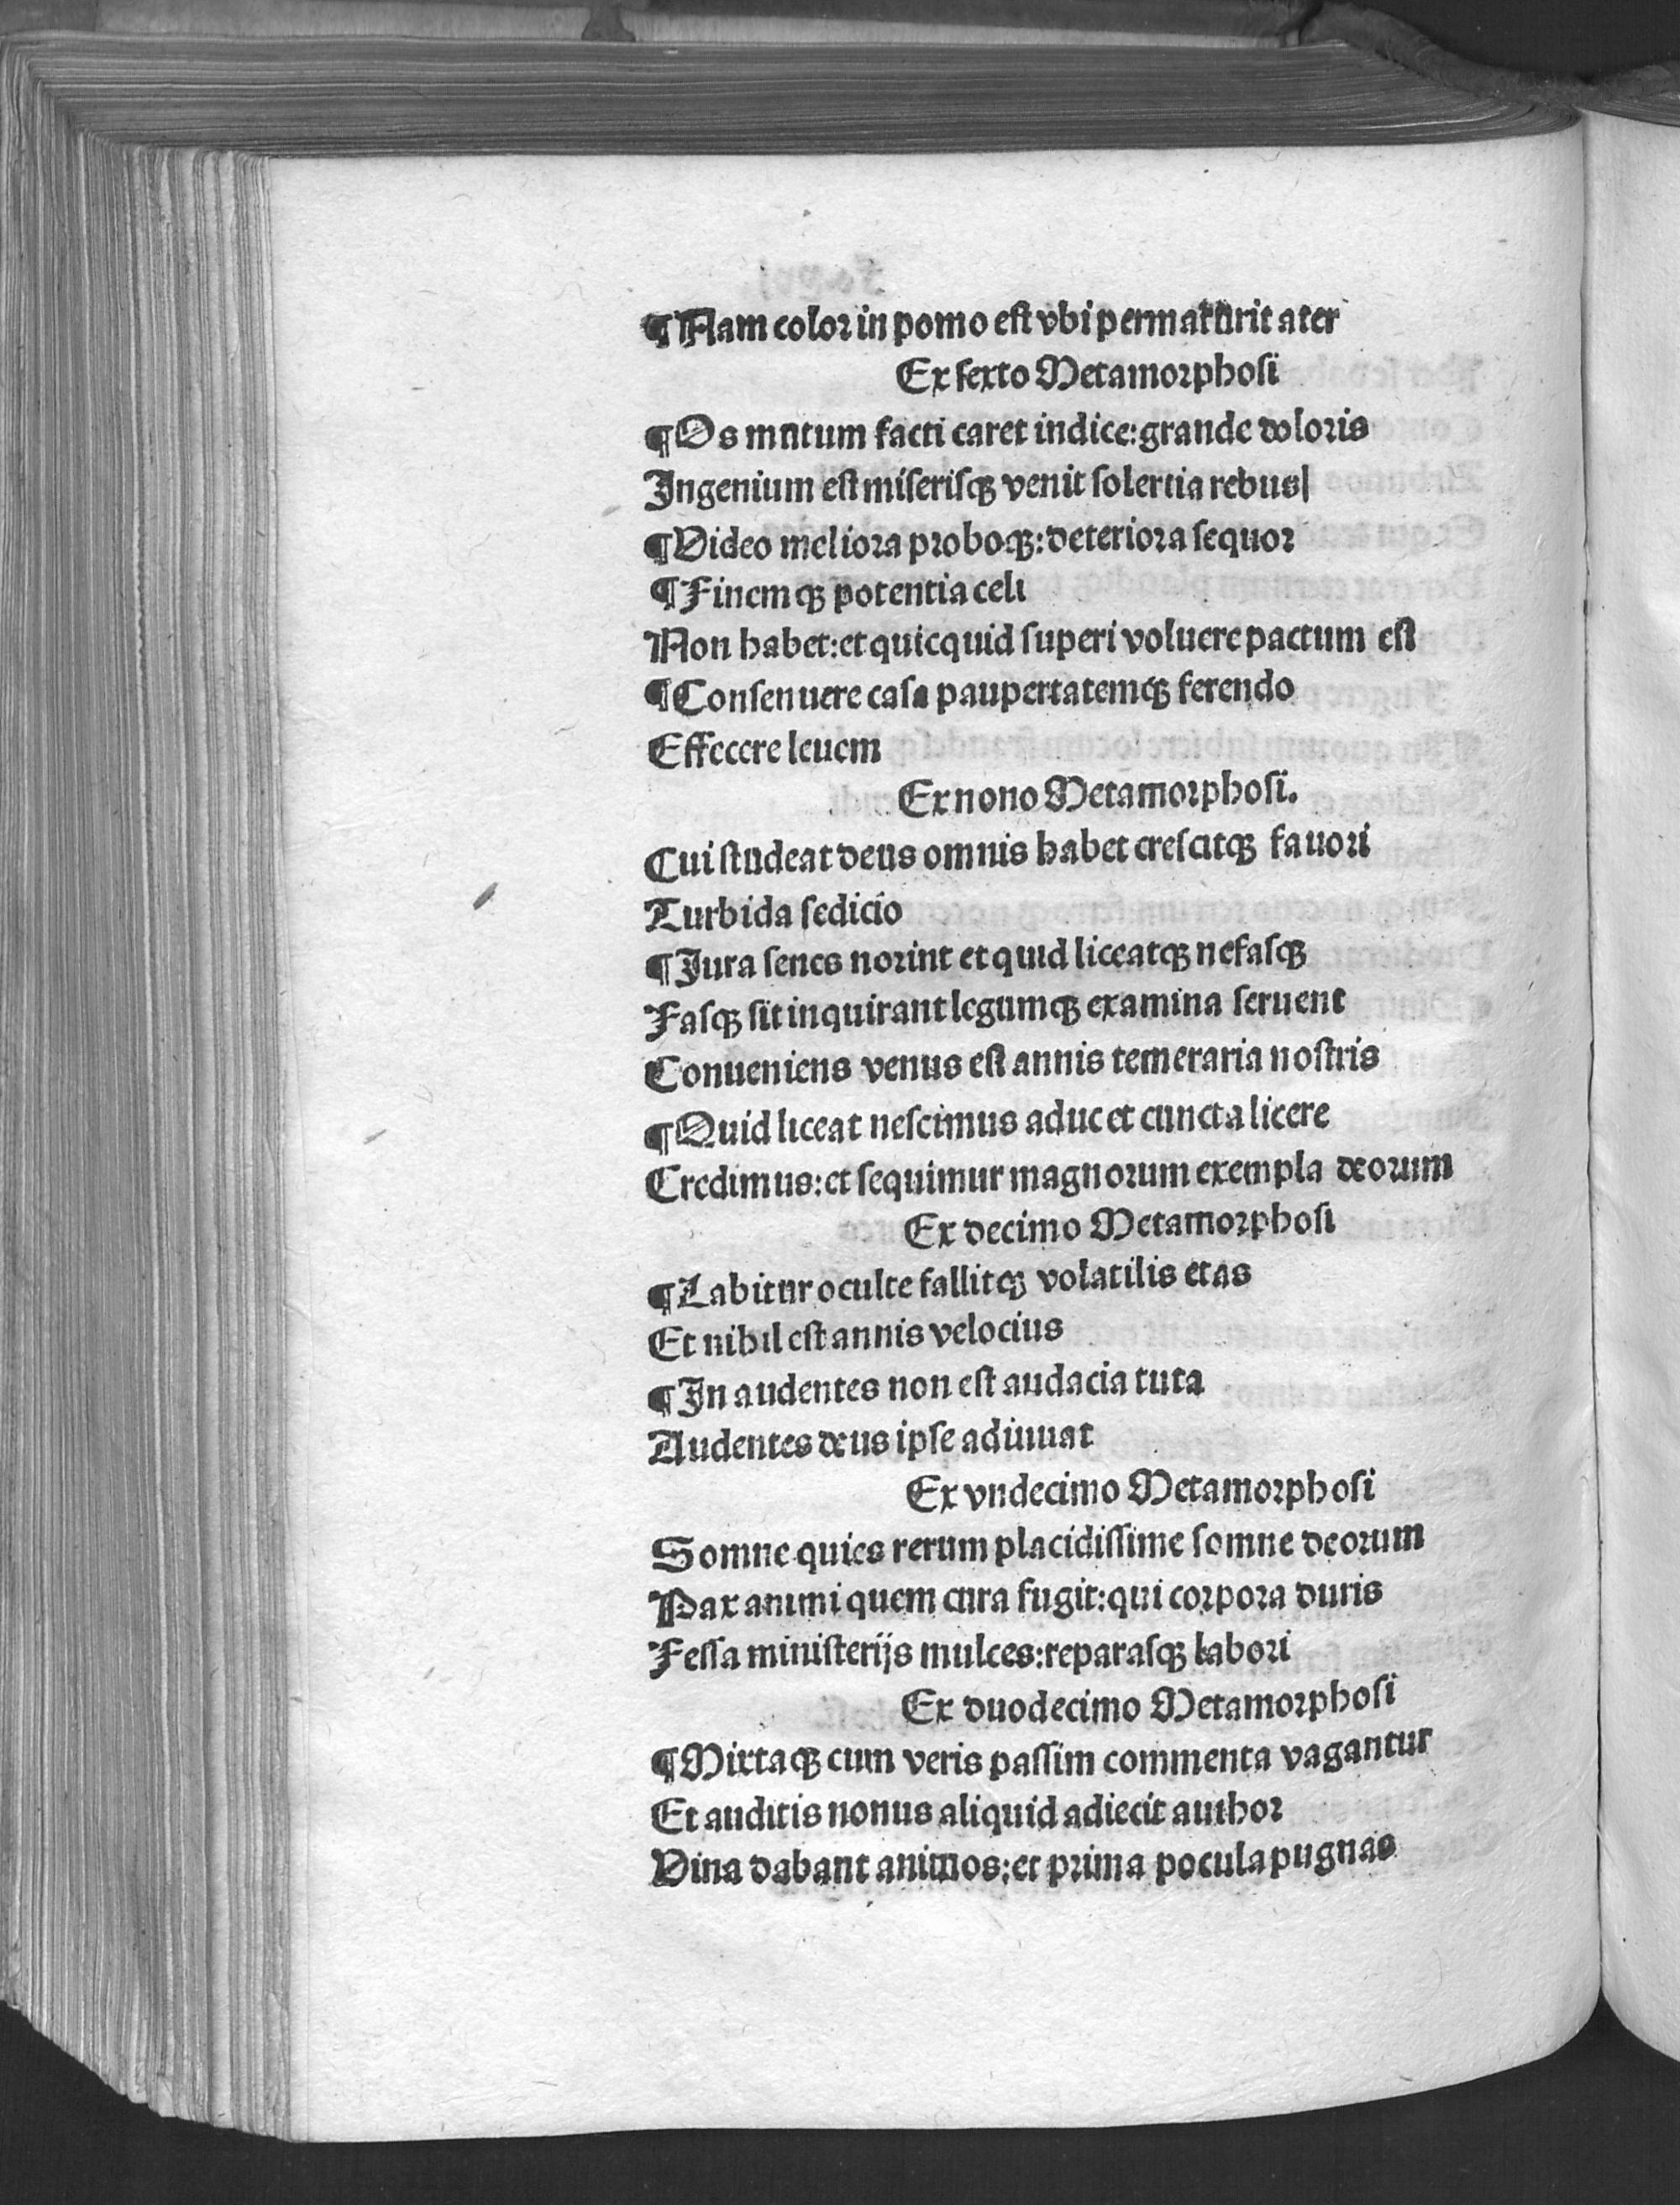 ¶Nam color in pomo eſt vbi permaturit ater
Ex ſexto Metamorphoſi
¶Os mutum facti caret indice: grande doloris
Ingenium eſt miſeriſqꝫ venit ſolertia rebus|
¶Video meliora proboqꝫ: deteriora ſequor
¶Finemqꝫ potentia celi
Non habet: et quicquid ſuperi voluere pactum eſt
¶Conſenuere caſa paupertatemqꝫ ferendo
Effecere leuem
Ex nono Metamorphoſi.
Cui ſtudeat deus omnis habet creſcitqꝫ fauori
Turbida ſedicio
¶Jura ſenes norint et quid liceatqꝫ nefaſqꝫ
Faſqꝫ ſit inquirant legumqꝫ examina ſeruent
Conueniens venus eſt annis temeraria noſtris
¶Quid liceat neſcimus aduc et cuncta licere
Credimus: et ſequimur magnorum exempla deorum
Ex decimo Metamorphoſi
¶Labitur oculte fallitqꝫ volatilis etas
Et nihil eſt annis velocius
¶In audentes non eſt audacia tuta
Audentes deus ipſe adiuuat
Ex vndecimo Metamorphoſi
Somne quies rerum placidiſſime ſomne deorum
Pax animi quem cura fugit: qui corpora duris
Feſſa miniſterijs mulces: reparaſqꝫ labori
Ex duodecimo Metamorphoſi
¶Mixtaqꝫ cum veris paſſim commenta vagantur
Et auditis nonus aliquid adiecit author
Vina dabant animos: et prima pocula pugnas